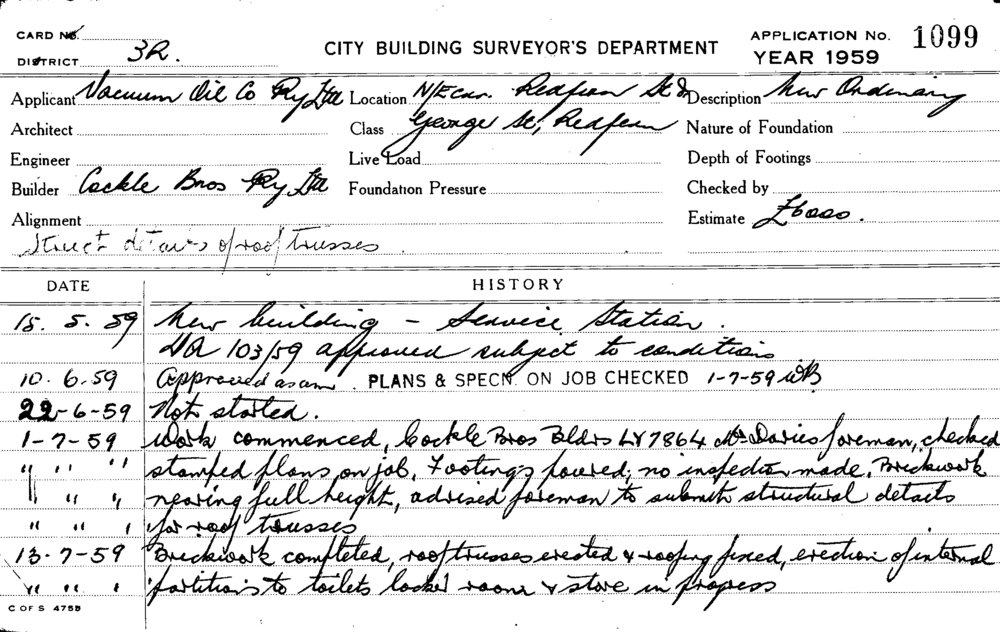 CARD No.
DISTRICT 3R.
CITY BUILDING SURVEYOR'S DEPARTMENT
APPLICATION No. 1099
YEAR 1959
Applicant Vacuum Oil Co Pty Ltd Location N/E cnr. Redfern St & Description New Ordinary
Architect Class George St, Redfern Nature of Foundation
Engineer Live Load Depth of Footings
Builder Cockle Bros Pty Ltd Foundation Pressure Checked by
Alignment Estimate £6000.
Struct details of roof trusses
DATE HISTORY
15. 5. 59 New building - Service Station.
DA 103/59 approved subject to conditions
10. 6. 59 Approved as am. PLANS & SPECN. ON JOB CHECKED 1-7-59 WB
22-6-59 Not started.
1-7-59 Work commenced, Cockle Bros Bldrs LY7864 Mr Davies foreman, checked
" " " stamped plans on job. Footings poured, no inspection made. Brickwork
" " " nearing full height, advised foreman to submit structural details
" " " for roof trusses
13-7-59 Brickwork completed, roof trusses erected & roofing fixed, erection of internal
" " " partitions to toilets locker room & store in progess
C OF S 4759